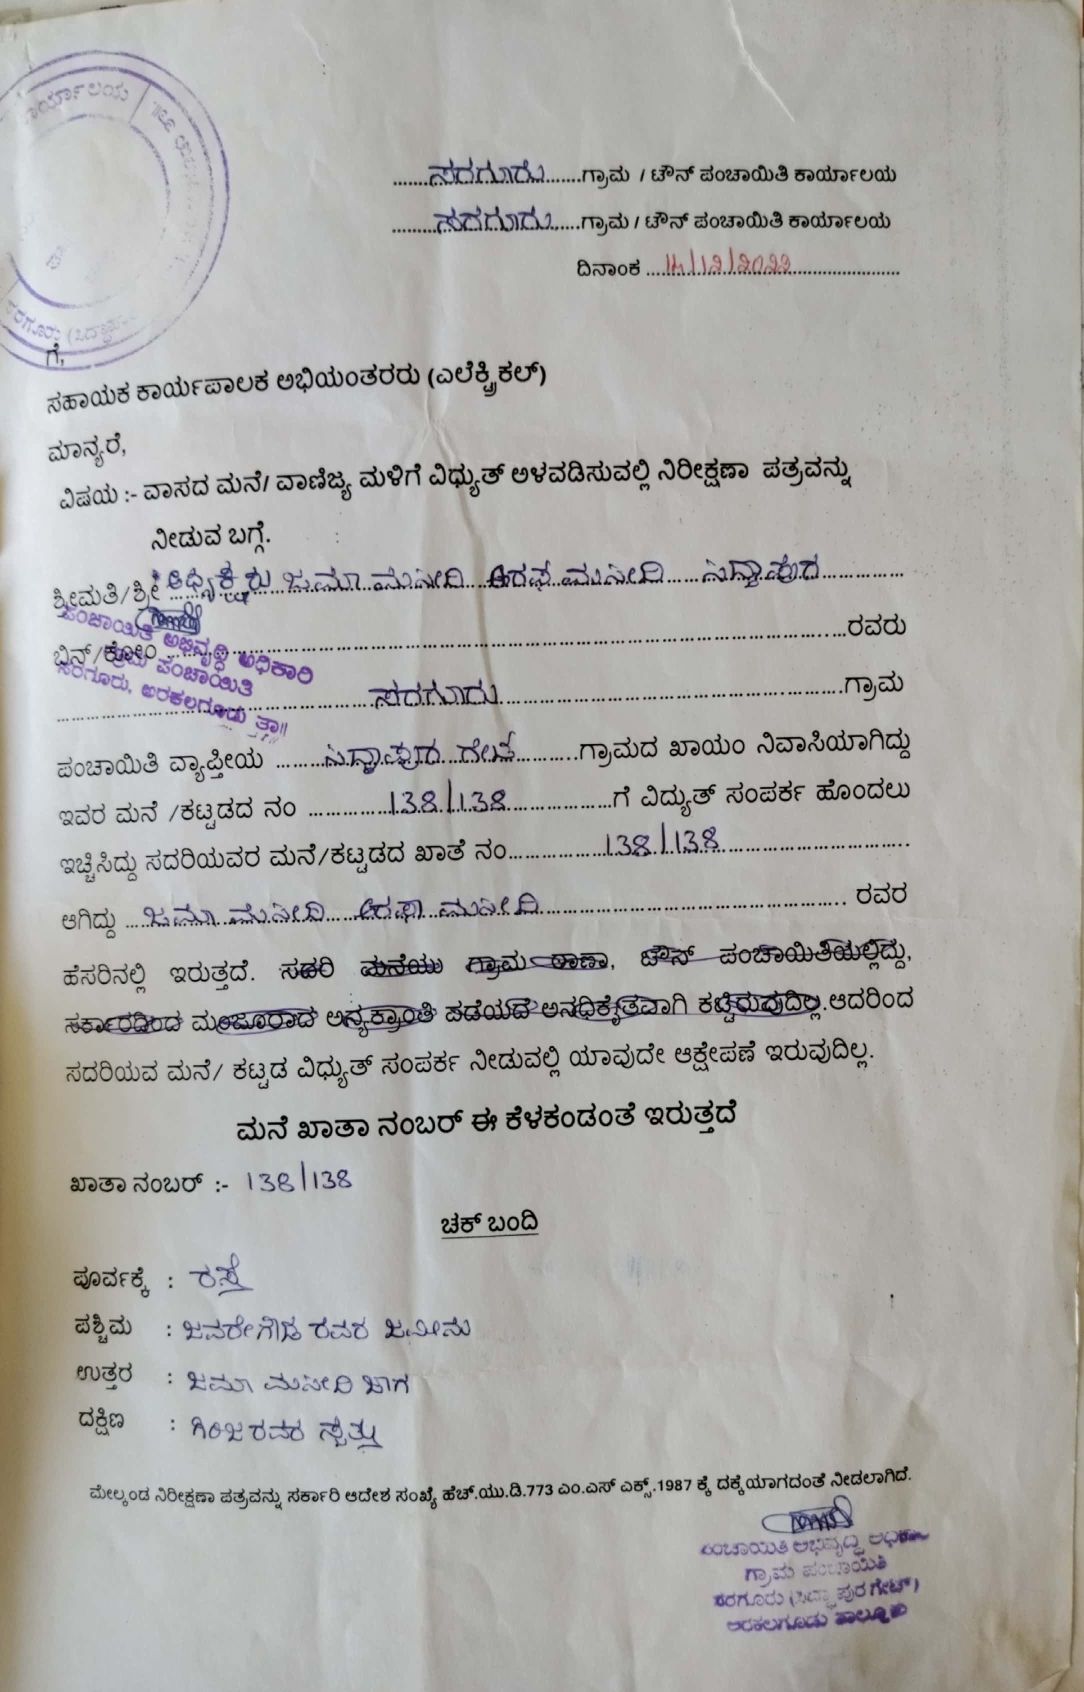 ಕಾರ್ಯಾಲಯ
ಸರಗೂರು (ಸಿದ್ದಾಪುರ
.......ಸರಗೂರು.......ಗ್ರಾಮ / ಟೌನ್ ಪಂಚಾಯಿತಿ ಕಾರ್ಯಾಲಯ
.........ಸರಗೂರು......ಗ್ರಾಮ / ಟೌನ್ ಪಂಚಾಯಿತಿ ಕಾರ್ಯಾಲಯ
ದಿನಾಂಕ ....14/12/2022......................
ಗೆ,
ಸಹಾಯಕ ಕಾರ್ಯಪಾಲಕ ಅಭಿಯಂತರರು (ಎಲೆಕ್ಟ್ರಿಕಲ್)
ಮಾನ್ಯರೆ,
ವಿಷಯ :- ವಾಸದ ಮನೆ/ ವಾಣಿಜ್ಯ ಮಳಿಗೆ ವಿಧ್ಯುತ್ ಅಳವಡಿಸುವಲ್ಲಿ ನಿರೀಕ್ಷಣಾ ಪತ್ರವನ್ನು
ನೀಡುವ ಬಗ್ಗೆ.
ಶ್ರೀಮತಿ/ಶ್ರೀ ಅಧ್ಯಕ್ಷರು ಜಮಾ ಮಸೀದಿ ಅರಫ ಮಸೀದಿ ..... ಸಿದ್ದಾಪುರ..............
ಬಿನ್/ಕೋಂ ........................................................................ರವರು
ಪಂಚಾಯಿತಿ ಅಭಿವೃದ್ಧಿ ಅಧಿಕಾರಿ
ಗ್ರಾಮ ಪಂಚಾಯಿತಿ
ಸರಗೂರು, ಅರಕಲಗೂಡು ತಾ||
.................................ಸರಗೂರು..................................ಗ್ರಾಮ
ಪಂಚಾಯಿತಿ ವ್ಯಾಪ್ತೀಯ ........ಸಿದ್ದಾಪುರ ಗೇಟ್..........ಗ್ರಾಮದ ಖಾಯಂ ನಿವಾಸಿಯಾಗಿದ್ದು
ಇವರ ಮನೆ /ಕಟ್ಟಡದ ನಂ .............138/138.................ಗೆ ವಿದ್ಯುತ್ ಸಂಪರ್ಕ ಹೊಂದಲು
ಇಚ್ಚಿಸಿದ್ದು ಸದರಿಯವರ ಮನೆ/ಕಟ್ಟಡದ ಖಾತೆ ನಂ................138/138..............................
ಆಗಿದ್ದು ....ಜಮಾ ಮಸೀದಿ.....ಅರಫಾ ಮಸೀದಿ.................................................. ರವರ
ಹೆಸರಿನಲ್ಲಿ ಇರುತ್ತದೆ. ಸದರಿ ಮನೆಯು ಗ್ರಾಮ ಠಾಣಾ, ಟೌನ್ ಪಂಚಾಯಿತಿಯಲ್ಲಿದ್ದು,
ಸರ್ಕಾರದಿಂದ ಮಂಜೂರಾದ ಅನ್ಯಕ್ರಾಂತಿ ಪಡೆಯದೆ ಅನಧಿಕೃತವಾಗಿ ಕಟ್ಟಿರುವುದಿಲ್ಲ.ಆದರಿಂದ
ಸದರಿಯವ ಮನೆ/ ಕಟ್ಟಡ ವಿಧ್ಯುತ್ ಸಂಪರ್ಕ ನೀಡುವಲ್ಲಿ ಯಾವುದೇ ಆಕ್ಷೇಪಣೆ ಇರುವುದಿಲ್ಲ.
ಮನೆ ಖಾತಾ ನಂಬರ್ ಈ ಕೆಳಕಂಡಂತೆ ಇರುತ್ತದೆ
ಖಾತಾ ನಂಬರ್ :- 138/138
ಚಕ್ ಬಂದಿ
ಪೂರ್ವಕ್ಕೆ : ರಸ್ತೆ
ಪಶ್ಚಿಮ : ಜವರೇಗೌಡ ರವರ ಜಮೀನು
ಉತ್ತರ : ಜಮಾ ಮಸೀದಿ ಜಾಗ
ದಕ್ಷಿಣ : ಗಿರಿಜ ರವರ ಸ್ವತ್ತು
ಮೇಲ್ಕಂಡ ನಿರೀಕ್ಷಣಾ ಪತ್ರವನ್ನು ಸರ್ಕಾರಿ ಆದೇಶ ಸಂಖ್ಯೆ ಹೆಚ್.ಯು.ಡಿ.773 ಎಂ.ಎಸ್ ಎಕ್ಸ್.1987 ಕ್ಕೆ ದಕ್ಕೆಯಾಗದಂತೆ ನೀಡಲಾಗಿದೆ.
ಪಂಚಾಯಿತಿ ಅಭಿವೃದ್ಧಿ ಅಧಿಕಾರಿ
ಗ್ರಾಮ ಪಂಚಾಯಿತಿ
ಸರಗೂರು (ಸಿದ್ದಾಪುರ ಗೇಟ್)
ಅರಕಲಗೂಡು ತಾಲ್ಲೂಕು